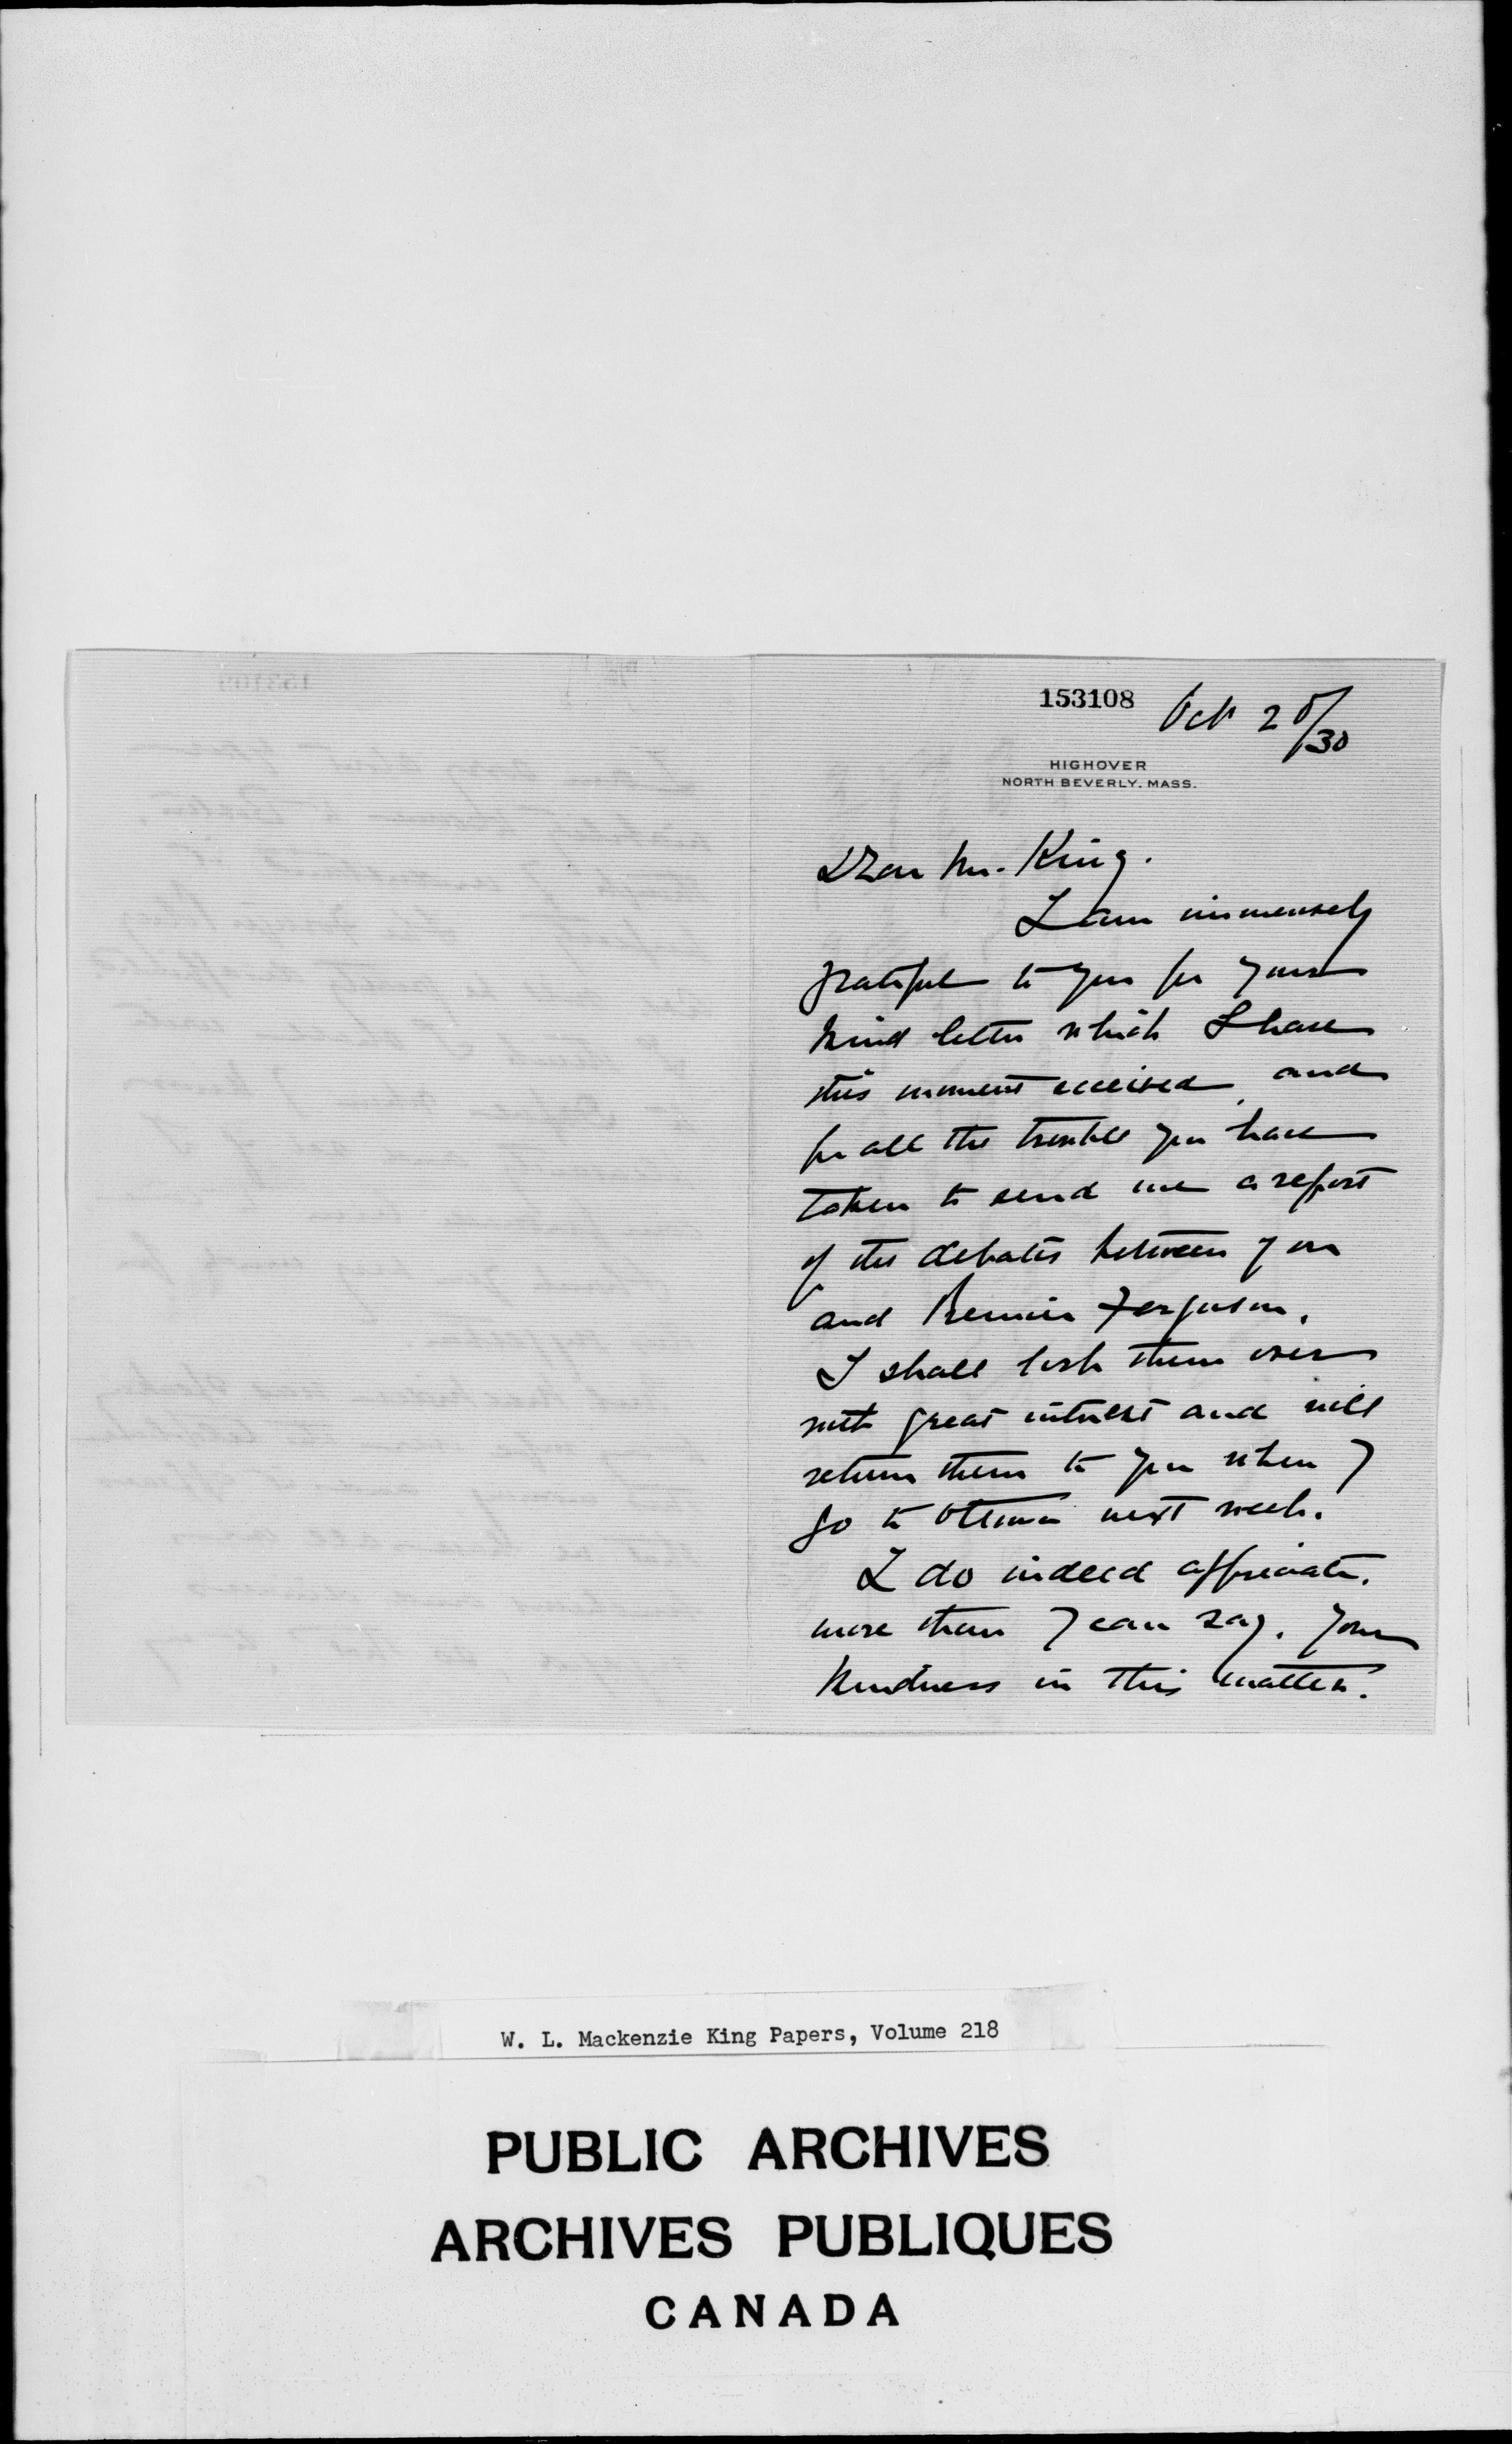 153108
Oct 25/30
HIGHOVER
NORTH BEVERLY, MASS.
Dear Mr. King.
I am immensely
grateful to you for your
kind letter which I have
this moment received, and
for all the trouble you have
taken to send me a report
of the debates between you
and Premier Ferguson.
I shall look them over
with great interest and will
return them to you when I
go to Ottawa next week.
I do indeed appreciate,
more than I can say, your
kindness in this matter.
W. L. Mackenzie King Papers, Volume 218
PUBLIC ARCHIVES
ARCHIVES PUBLIQUES
CANADA